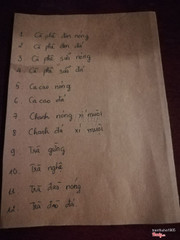 1 Cà phê đen nóng
2 Cà phê đen đá
3 Cà phê sữa nóng
4 Cà phê sữa đá
5 Ca cao nóng
6 Ca cao đá
7 Chanh nóng xí muội
8 Chanh đá xí muội
9 Trà gừng
10. Trà nghệ
11 Trà đào nóng
12 Trà đào đá